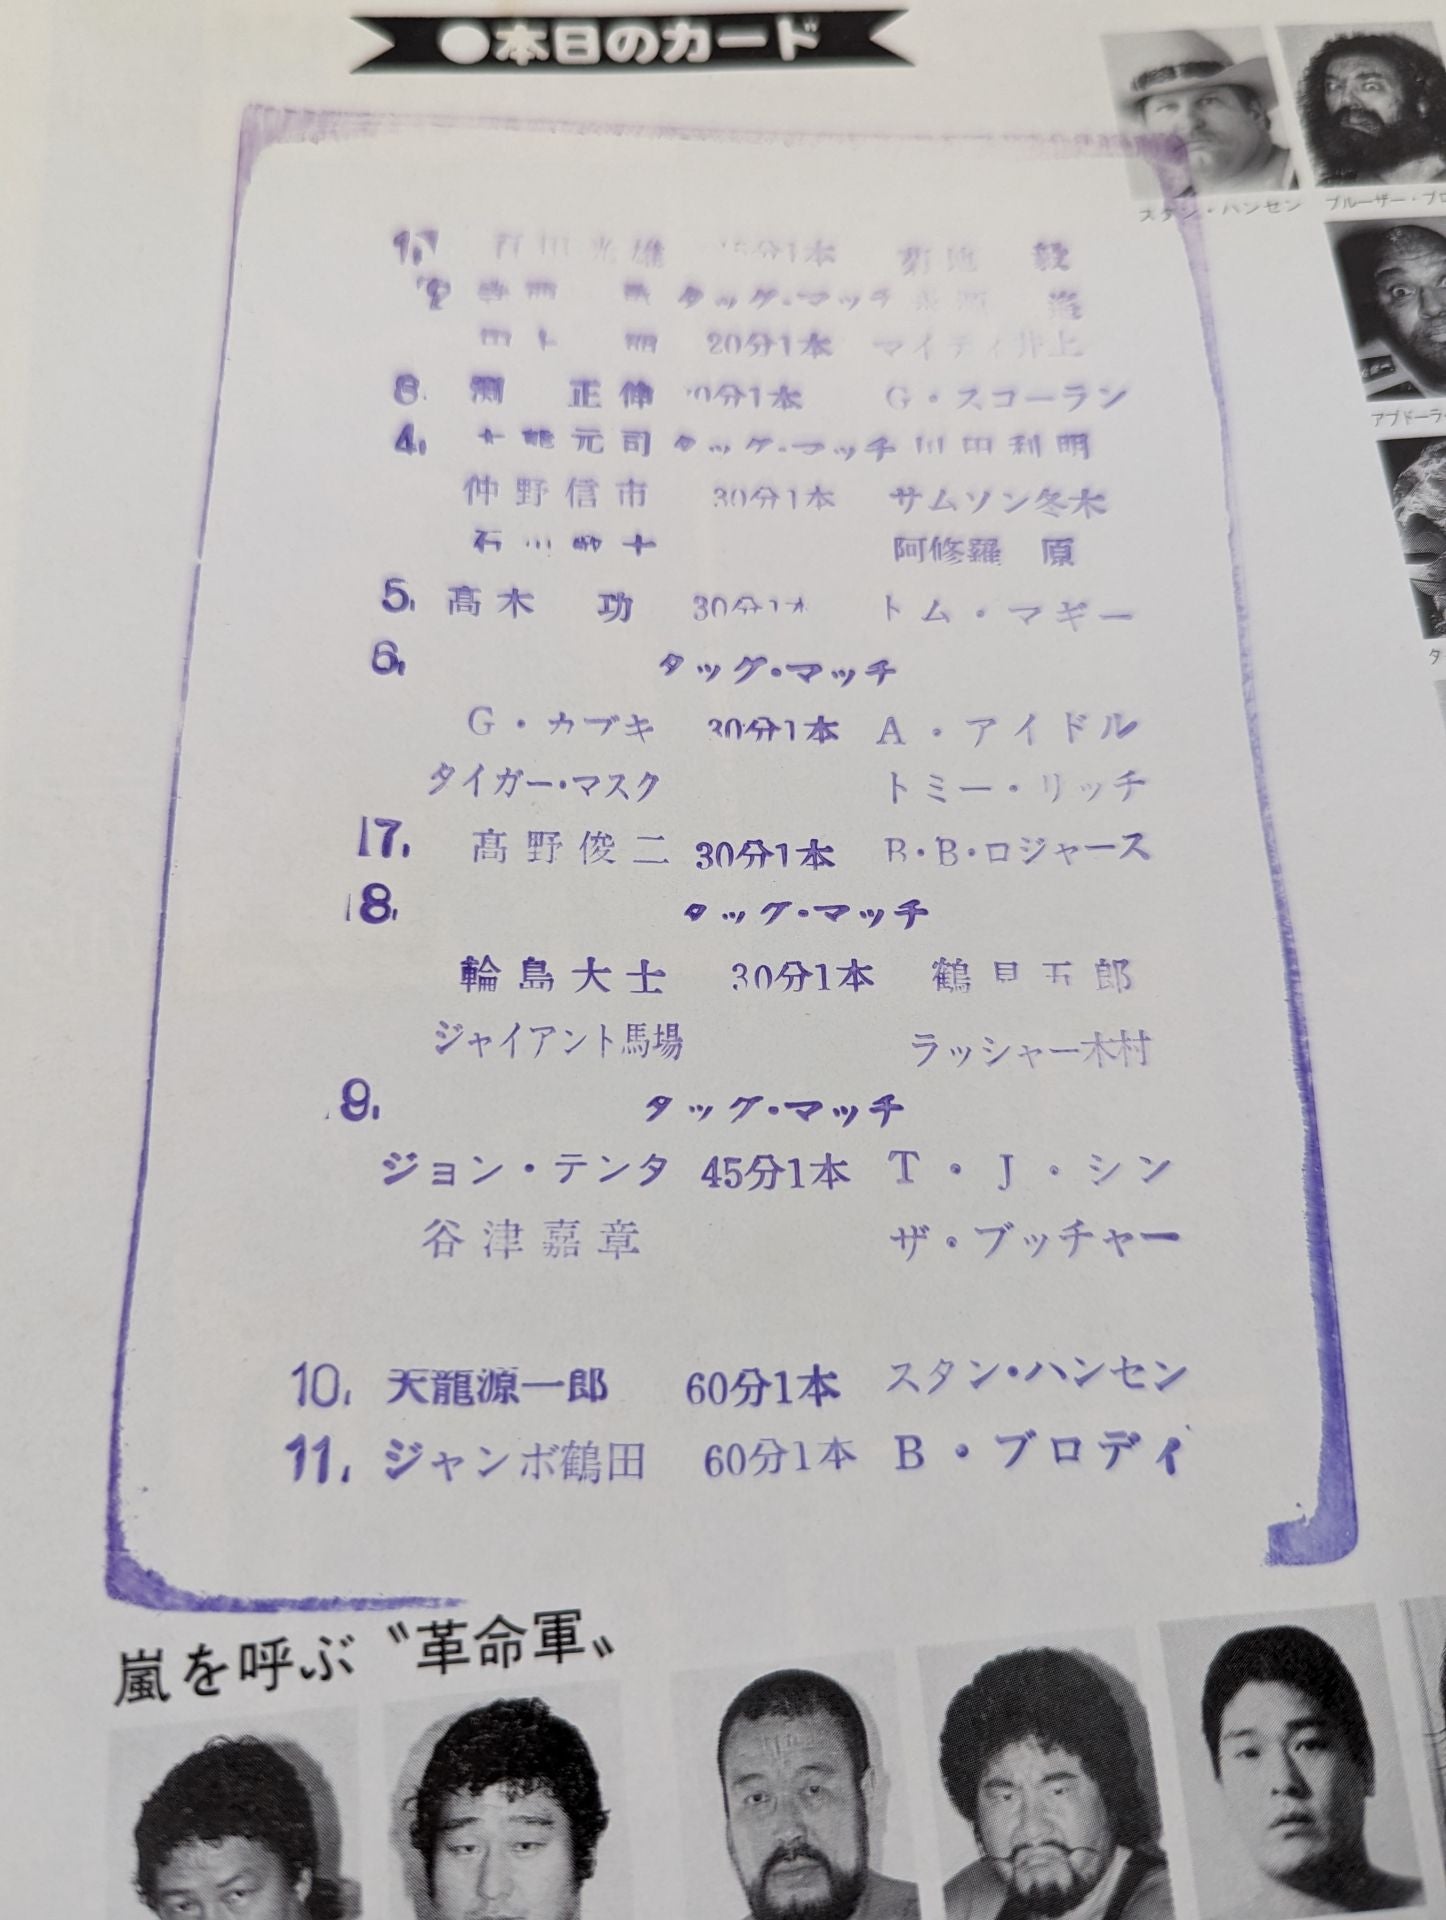 ●本日のカード
スタン・ハンセン
ブルーザー・ブロ
アブドーラ
タ
1. 百田光雄 15分1本 菊地 毅
2 タッグ・マッチ
20分1本 マイティ井上
3. 渕 正伸 30分1本 G・スコーラン
4. 元司 タッグ・マッチ 川田利明
仲野信市 30分1本 サムソン冬木
石川 阿修羅 原
5. 高木 功 30分1本 トム・マギー
6. タッグ・マッチ
G・カブキ 30分1本 A・アイドル
タイガー・マスク トミー・リッチ
7. 高野俊二 30分1本 B・B・ロジャース
8. タッグ・マッチ
輪島大士 30分1本 鶴見五郎
ジャイアント馬場 ラッシャー木村
9. タッグ・マッチ
ジョン・テンタ 45分1本 T・J・シン
谷津嘉章 ザ・ブッチャー
10. 天龍源一郎 60分1本 スタン・ハンセン
11. ジャンボ鶴田 60分1本 B・ブロディ
嵐を呼ぶ〝革命軍〟